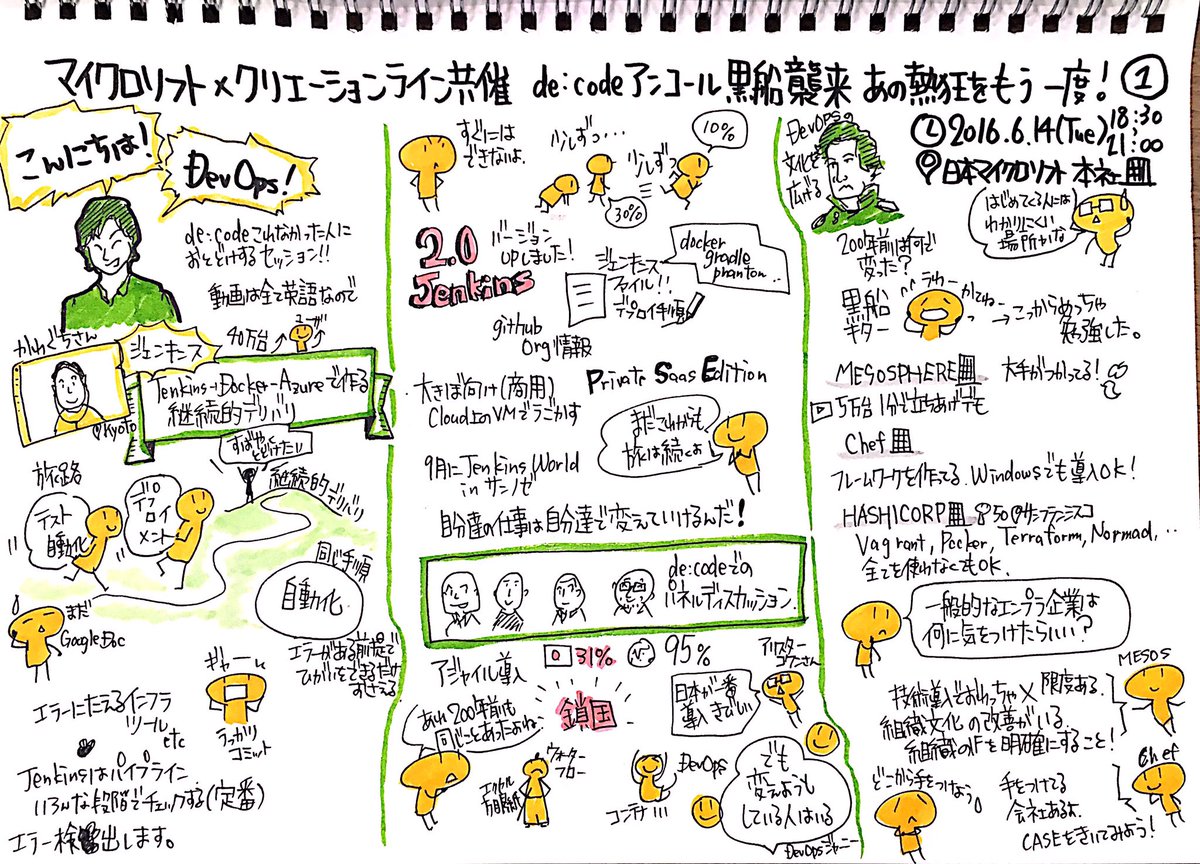 マイクロソフト×クリエーションライン共催 de:codeアンコール 黒船襲来 あの熱狂をもう一度! ①
2016.6.14(Tue) 18:30
21:00
日本マイクロソフト 本社
こんにちは!
DevOps!
de:codeこれなかった人に
おとどけするセッション!!
動画は全て英語なので
かわぐちさん
ジェンキンス
40万台
ユーザ
Jenkins-Docker-Azureで作る
継続的デリバリ
@Kyoto
すばやく
とどけたい
旅路
継続的デリバリ
テスト
自動化
デプロイ
メント
同じ手順
自動化
まだ
GoogleDoc
エラーがある前提で
ひがいをできるだけ
おさえる
エラーにたえるインフラ
ツール
etc
ギャーッ
うっかり
コミット
Jenkinsはパイプライン
いろんな段階でチェックする(定番)
エラー検出します。
すぐには
できないよ。
少しずつ…
少しずつ
30%
10%
2.0
Jenkins
バージョン
UPしました!
ジェンキンス
ファイル!!
デプロイ手順
docker
gradle
phantom…
github
Org情報
大きぼ向け(商用)
Cloud上のVMでうごかす
Private SaaS Edition
まだこれからも
旅は続くよ
9月にJenkins World
in サンノゼ
自分達の仕事は自分達で変えていけるんだ!
de:codeでの
パネルディスカッション.
アジャイル導入
31%
95%
鎖国
日本が一番
導入きびしい
あれ200年前も
同じことあったよね。
エクセル
方眼紙
ウォーター
フロー
DevOps
コンテナ!!!
でも
変えようと
している人はいる
DevOpsジャーニー
DevOpsの
文化を
広げる
はじめてくる人には
わかりにくい
場所かな
200年前は何で
変った?
黒船
ギター
→こっからめっちゃ
勉強した。
MESOSPHERE
大手がつかってる!
5万台1分で立ちあげでも
Chef
フレームワークを作ってる Windowsでも導入OK!
HASHICORP
50@サンフランシスコ
Vagrant, Pocker, Terraform, Normad,…
全てを使わなくてもOK.
一般的なエンプラ企業は
何に気をつけたらいい?
技術導入でおわっちゃ×
限度ある.
MESOS
組織文化の改善がいる.
組織のIFを明確にすること!
どこから手をつけよう。
手をつけてる
会社あるよ.
CASEをきいてみよう!
Chef